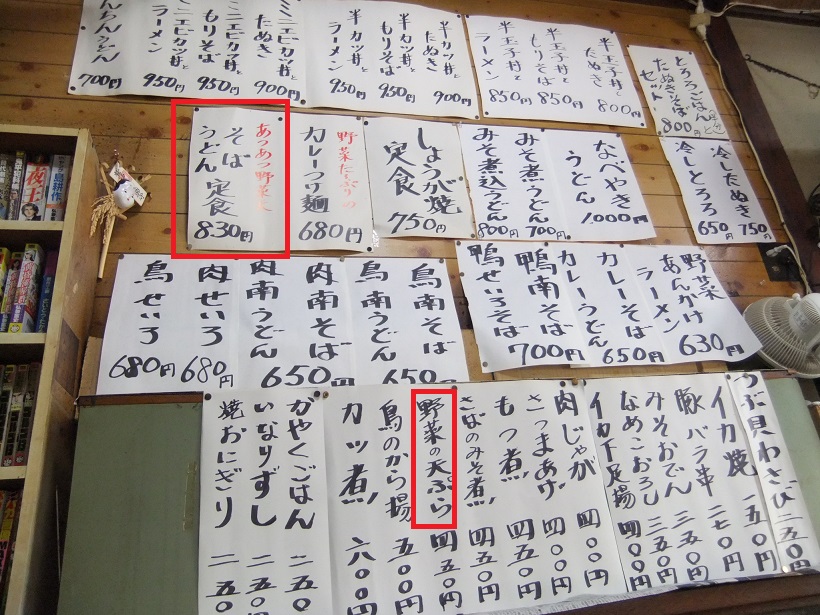 とろろごはんと
たぬきそば
セット
800円
半玉子丼と
たぬき
800円
半玉子丼と
もりそば
850円
半玉子丼と
ラーメン
850円
半カツ丼と
たぬき
900円
半カツ丼と
もりそば
950円
半カツ丼と
ラーメン
950円
ミニエビカツ丼と
たぬき
900円
ミニエビカツ丼と
もりそば
950円
ミニエビカツ丼と
ラーメン
950円
んちんうどん
700円
冷したぬき
750円
冷しとろろ
650円
なべやき
うどん
1,000円
みそ煮うどん
700円
みそ煮込うどん
800円
しょうが焼
定食
750円
野菜たっぷりの
カレーつけ麺
680円
あつあつ野菜天
そば
うどん
定食
830円
野菜
あんかけ
ラーメン
630円
カレーそば
カレーうどん
650円
鴨南そば
鴨せいろそば
700円
鳥南そば
鳥南うどん
650円
肉南そば
肉南うどん
650円
肉せいろ
680円
鳥せいろ
680円
つぶ貝わさび 二五〇円
イカ焼 一五〇円
豚バラ串 二七〇円
みそおでん 三五〇円
なめこおろし 二五〇円
イカ下足揚 四〇〇円
肉じゃが 四〇〇円
さつまあげ 四〇〇円
もつ煮 四五〇円
さばのみそ煮 四五〇円
野菜の天ぷら 四五〇円
鳥のから揚 五〇〇円
カツ煮 六〇〇円
がやくごはん 二五〇
いなりずし 二五〇
焼おにぎり 二五〇
夜王